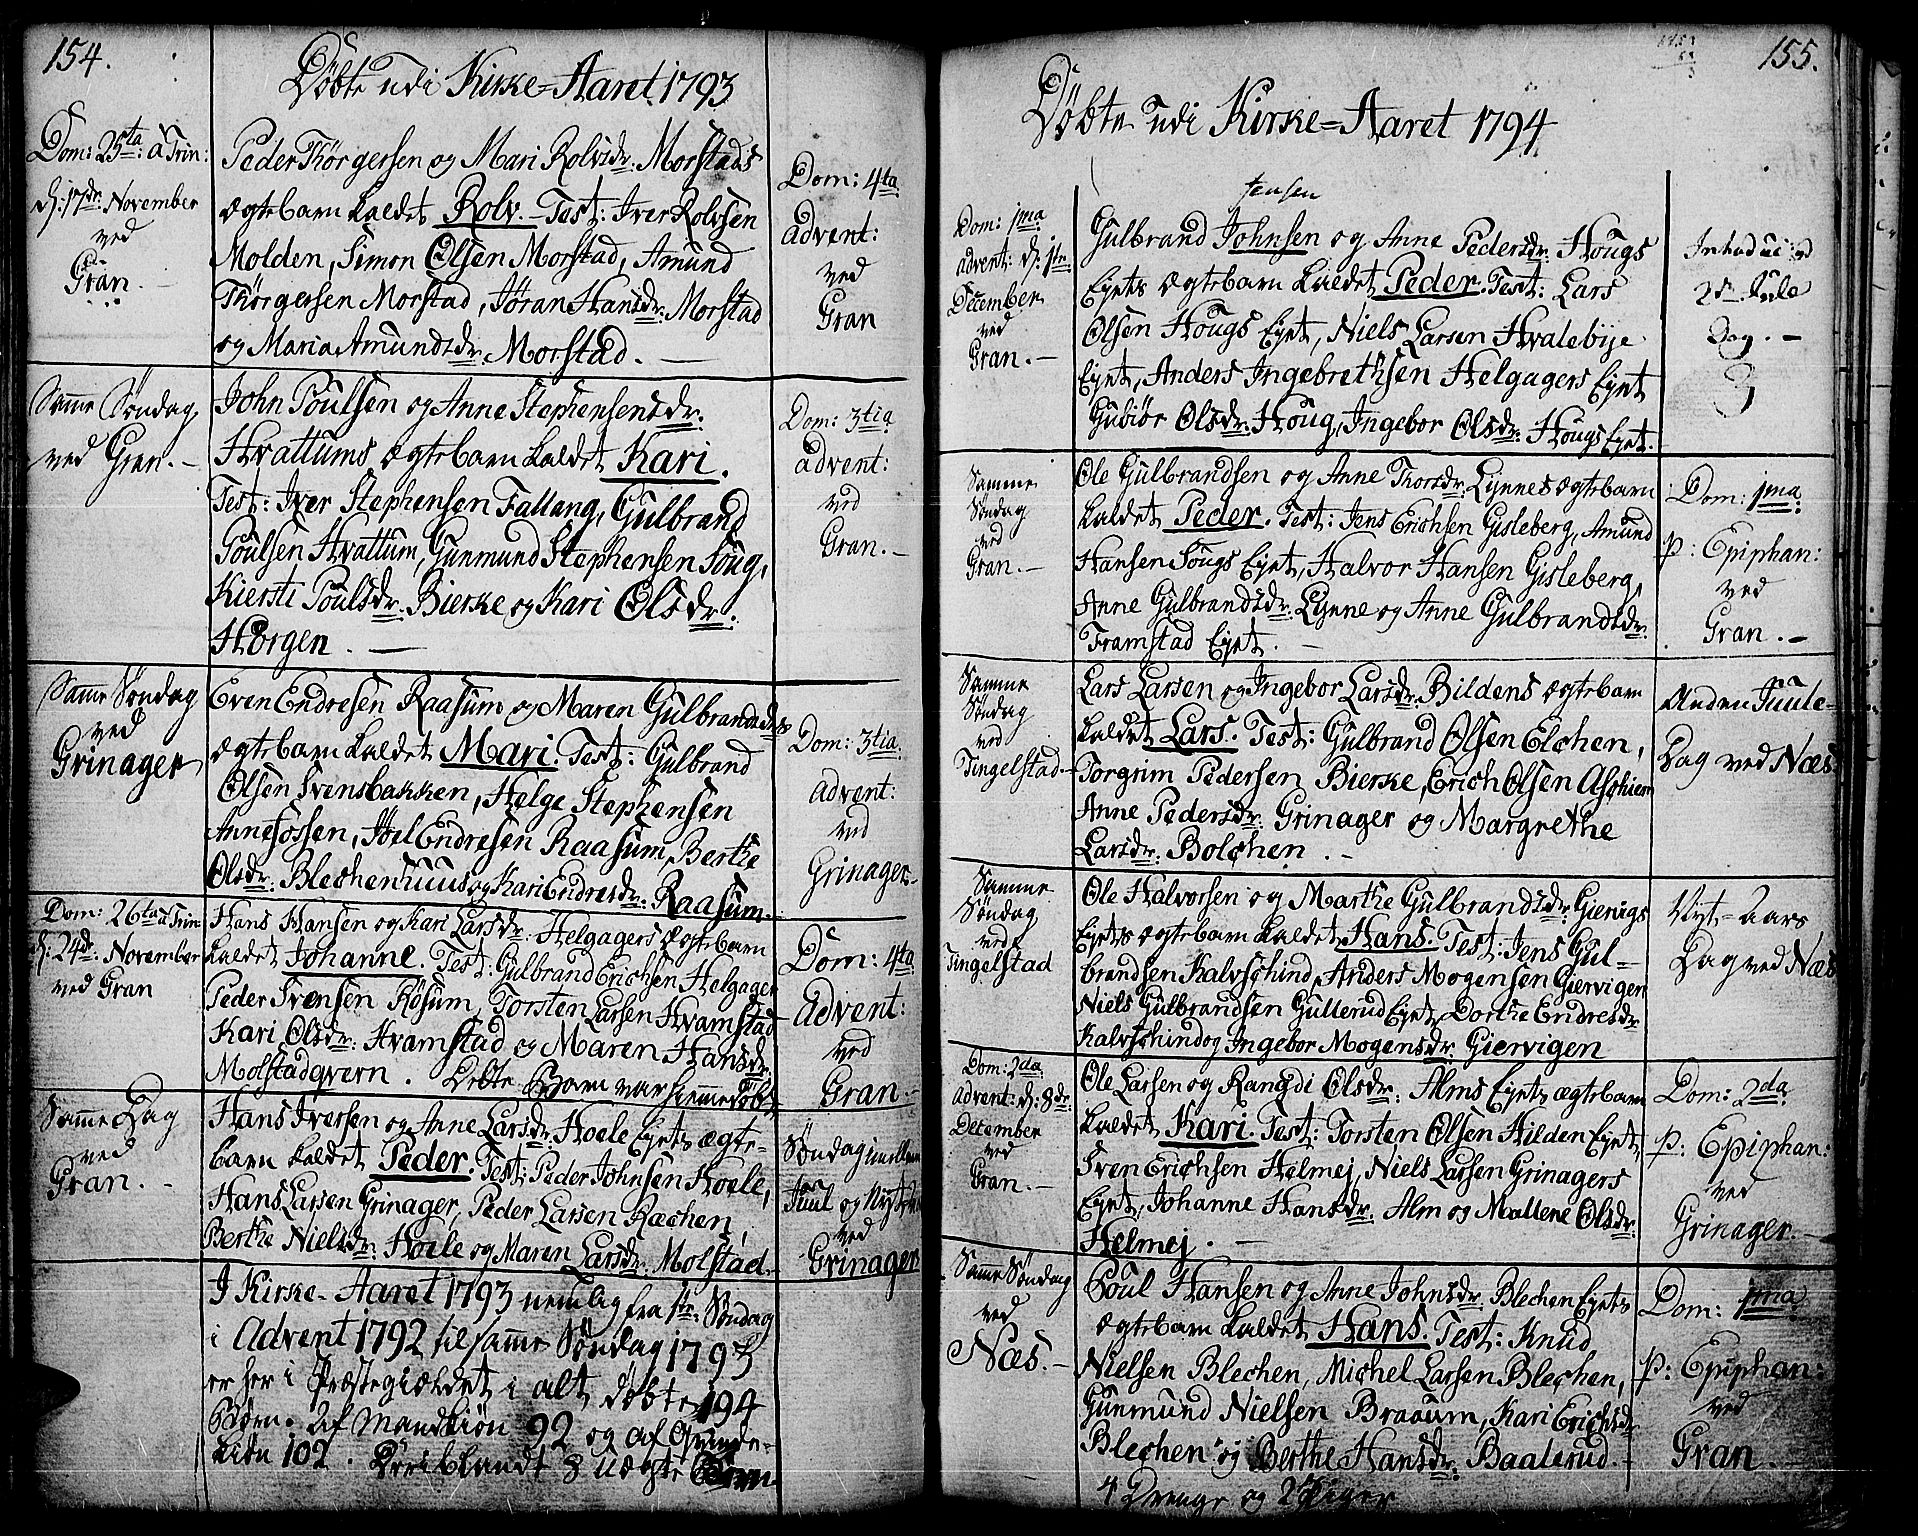 154.
Döbte udi Kirke=Aaret 1793
Dom: 25ta: a Trin:
d: 17de: November
ved
Gran. -
Peder Thörgersen og Mari Rolvsdr: Morstads
ægtebarn kaldet Rolv. - Test: Iver Rolvsen
Molden, Simon Olsen Morstad, Amund
Thörgersen Morstad, Jöran Hansdr: Morstad
og Maria Amundsdr: Morstad. -
Dom: 4ta
Advent:
ved
Gran
Samme Söndag
ved Gran. -
John Poulsen og Anne Stephensensdr:
Hvattums ægtebarn kaldet Kari.
Test: Iver Stephensen Fallang, Gulbrand
Poulsen Hvattum, Gunmund Stephensen Houg,
Kiersti Poulsdr: Bierke og Kari Olsdr:
Horgen. -
Dom: 3tia
Advent:
ved
Gran. -
Samme Söndag
ved
Grinager
Even Endresen Raasum og Maren Gulbrandsdrs
ægtebarn kaldet Mari. Test: Gulbrand
Olsen Svensbakken, Helge Stephensen
Annefossen, Joel Endresen Raasum, Berthe
Olsdr: Blechenhuus og Kari Endresdr: Raasum. -
Dom: 3tia
Advent:
ved
Grinager. -
Dom: 26ta a Trin
d: 24de: November
ved Gran
Hans Hansen og Kari Larsdr: Helgagers ægtebarn
kaldet Johanne. Test: Gulbrand Erichsen Helgager
Peder Svensen Rösum, Torsten Larsen Hvamstad
Kari Olsdr: Hvamstad og Maren Hansdr:
Molstadqvern. Dette Barn var hiemmedöbt
Dom: 4ta
Advent:
ved
Gran. -
Samme Dag
ved
Gran. -
Hans Iversen og Anne Larsdr: Hoele Eyets ægte-
barn kaldet Peder. Test: Peder Johnsen Hoele,
Hans Larsen Grinager, Peder Larsen Ræchen,
Berthe Nielsdr: Hoele og Maren Larsdr: Molstad. -
Söndag imellem
Juul og Nyt
ved
Grinager
I Kirke-Aaret 1793 nemlig fra 1te: Söndag
i Advent 1792 til samme Söndag 1793
er her i Præstegieldet i alt döbte 194
Börn. Af Mandkiön 92 og af Qvinde-
kiön 102. Deriblandt 8 uægte Börn
155.
Döbte udi Kirke=Aaret 1794
Dom: 1ma
Advent: d: 1te:
December
ved
Gran. -
Jensen
Gulbrand Johnsen og Anne Pedersdr: Hougs
Eyets ægtebarn kaldet Peder. Test: Lars
Olsen Hougs Eyet, Niels Larsen Hvalebye
Eyet, Anders Ingebrethsen Helgagers Eyet
Gubiör Olsdr: Houg, Ingebor Olsdr: Hougs Eyet.
Introducered
2den Jule
Dag. -
Samme
Söndag
ved
Gran. -
Ole Gulbrandsen og Anne Thorsdr: Lynnes ægtebarn
kaldet Peder. Test: Jens Erichsen Gisleberg, Amund
Hansen Hougs Eyet, Halvor Hansen Gisleberg,
Anne Gulbrandsdr: Lynne og Anne Gulbrandsdr:
Framstad Eyet. -
Dom: 1ma
p: Epiphan:
ved
Gran. -
Samme
Söndag
ved
Tingelstad. -
Lars Larsen og Ingebor Larsdr: Bildens ægtebarn
kaldet Lars. Test: Gulbrand Olsen Elchen,
Torgrim Pedersen Bierke, Erich Olsen Aschiem
Anne Pedersdr: Grinager og Margrethe
Larsdr: Bolchen. -
Anden Juule-
Dag ved Næs
Samme
Söndag
ved
Tingelstad
Ole Halvorsen og Marthe Gulbrandsdr: Gierigs
Eyets ægtebarn kaldet Hans. Test: Jens Gul-
brandsen Kalvschind, Anders Mogensen Giervigen
Niels Gulbrandsen Gullerud Eyet, Dorthe Endresdr:
Kalvschind og Ingebor Mogensdr: Giervigen
Nyt-Aars
Dag ved Næs
Dom: 2da
Advent: d: 8de:
December
ved
Gran. -
Ole Larsen og Rangdi Olsdr: Alms Eyets ægtebarn
kaldet Kari. Test: Torsten Olsen Hilden Eyet,
Sven Erichsen Helmej, Niels Larsen Grinagers
Eyet, Johanne Hansdr: Alm og Mallene Olsdr:
Helmej. -
Dom: 2da
p: Epiphan:
ved
Grinager. -
Samme Söndag
ved
Næs. -
Poul Hansen og Anne Johnsdr: Blechen Eyets
ægtebarn kaldet Hans. Test: Knud
Nielsen Blechen, Michel Larsen Blechen,
Gunmund Nielsen Braaum, Kari Erichsdr:
Blechen og Berthe Hansdr: Baalerud. -
4 Drenge og 2 Piger
Dom: 1ma
p: Epiphan:
ved
Gran. -